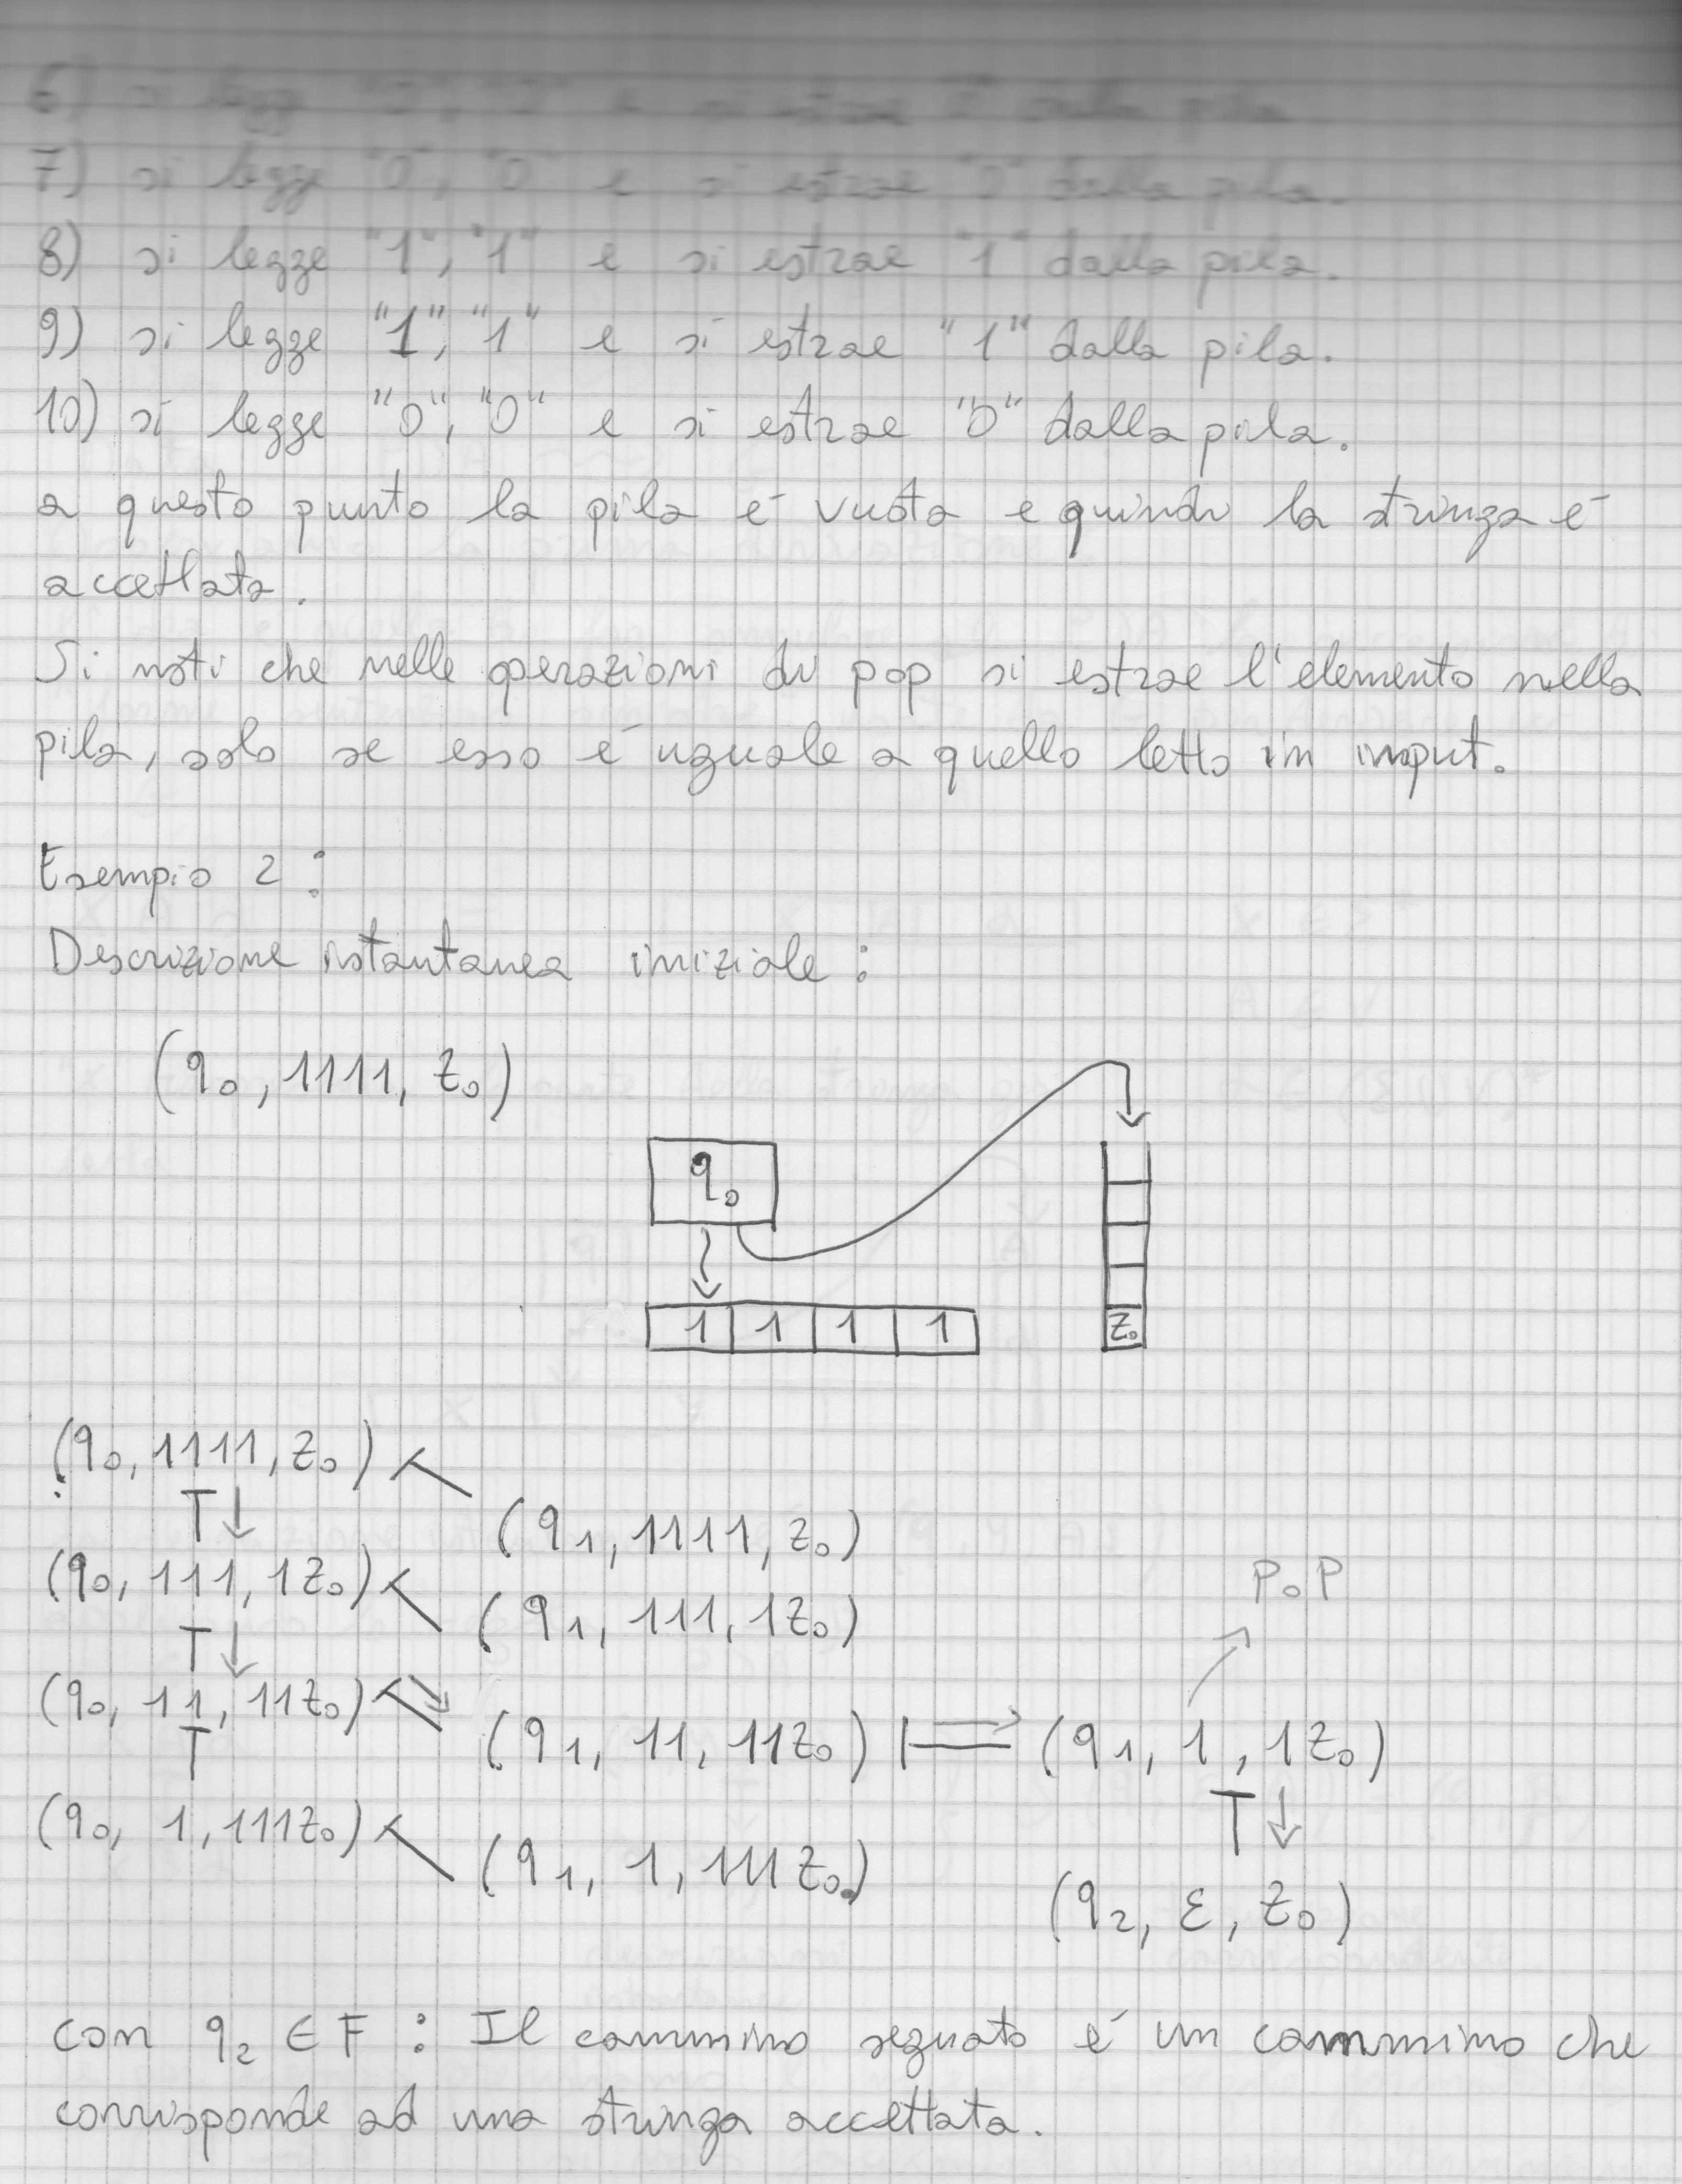 6) si legge "0", "0" e si estrae "0" dalla pila.
7) si legge "0", "0" e si estrae "0" dalla pila.
8) si legge "1", "1" e si estrae "1" dalla pila.
9) si legge "1", "1" e si estrae "1" dalla pila.
10) si legge "0", "0" e si estrae "0" dalla pila.
a questo punto la pila é vuota e quindi la stringa é
accettata.
Si noti che nelle operazioni di pop si estrae l'elemento nella
pila, solo se esso é uguale a quello letto in input.
Esempio 2:
Descrizione istantanea iniziale:
(q₀, 1111, z₀)
q₀
1 1 1 1
z₀
(q₀, 1111, z₀)
(q₁, 1111, z₀)
(q₀, 111, 1z₀)
(q₁, 111, 1z₀)
POP
(q₀, 11, 11z₀)
(q₁, 11, 11z₀) ⊢ (q₁, 1, 1z₀)
(q₀, 1, 111z₀)
(q₁, 1, 111z₀)
(q₂, ε, z₀)
con q₂ ∈ F : Il cammino segnato é un cammino che
corrisponde ad una stringa accettata.